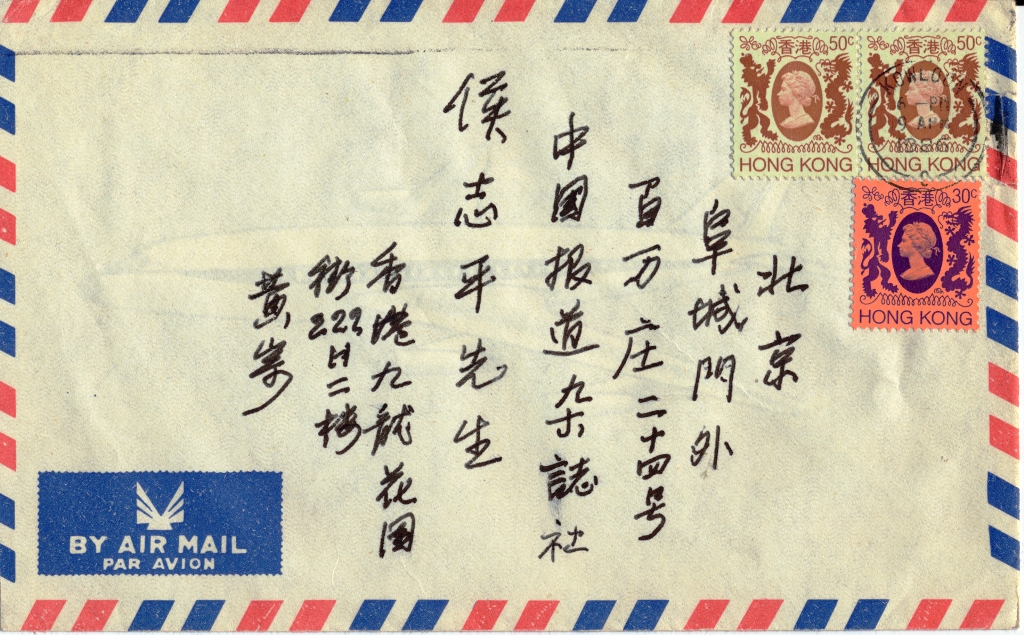 北京
阜城門外
百万庄二十四号
中國报道杂誌社
侯志平先生
香港九龍花园
街222
H二楼
黃寄
香港 50c
HONG KONG
香港 50c
HONG KONG
香港 30c
HONG KONG
KOWLOON
PM
9 AP
BY AIR MAIL
PAR AVION